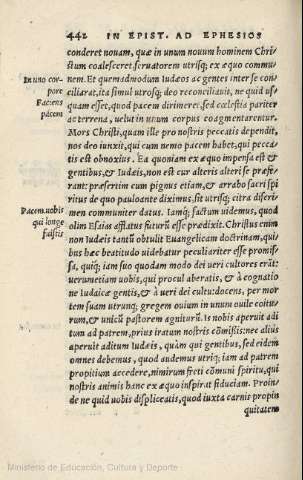 442 IN EPIST. AD EPHESIOS
conderet nouam, quæ in unum nouum hominem Chri-
stum coalesceret seruatorem utrisq; ex æquo commu-
In uno cor- nem. Et quemadmodum Iudæos ac gentes inter se con-
pore ciliarat, ita simul utrosq; deo reconciliauit, ne quid us-
Faciens quam esset, quod pacem dirimeret, sed cœlestia pariter
pacem ac terrena, uelut in unum corpus coagmentarentur.
Mors Christi, quam ille pro nostris peccatis dependit,
nos deo iunxit, qui cum nemo pacem habet, qui pecca-
tis est obnoxius. Ea quoniam ex æquo impensa est &
gentibus, & Iudæis, non est cur alteris alteri se præfe-
rant: præsertim cum pignus etiam, & arrabo sacri spi
ritus de quo pauloante diximus, sit utrisq; citra discri-
Pacem uobis men communiter datus. Iamq; factum uidemus, quod
qui longe olim Esaias afflatus futurũ esse prædixit. Christus enim
fuistis non Iudæis tantũ obtulit Euangelicam doctrinam, qui-
bus hæc beatitudo uidebatur peculiariter esse promis-
sa, quiq; iam suo quodam modo dei ueri cultores erãt:
uerumetiam uobis, qui procul aberatis, & à cognatio
ne Iudaicæ gentis, & à ueri dei cultu: docens, per mor
tem suam utrunq; gregem ouium in unum ouile coitu-
rum, & unicũ pastorem agniturũ. Is nobis aperuit adi
tum ad patrem, prius iratum nostris cõmissis: nec alius
aperuit aditum Iudæis, quàm qui gentibus, sed eidem
omnes debemus, quod audemus utriq; iam ad patrem
propitium accedere, nimirum freti cõmuni spiritu, qui
nostris animis hanc ex æquo inspirat fiduciam. Proin-
de ne quid uobis displiceatis, quod iuxta carnis propin
quitatem
Ministerio de Educación, Cultura y Deporte